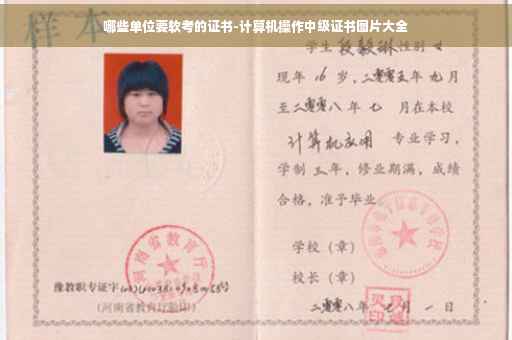 哪些单位要软考的证书-计算机操作中级证书图片大全
样本
学生段毅琳性别女
现年16岁，二零零五年九月
至二零零八年七月在本校
计算机应用 专业学习，
学制三年，修业期满，成绩
合格，准予毕业。
学校（章）
校长（章）
二零零八年七月一日
河南省教育厅
豫教职专证字
（河南省教育厅验印）